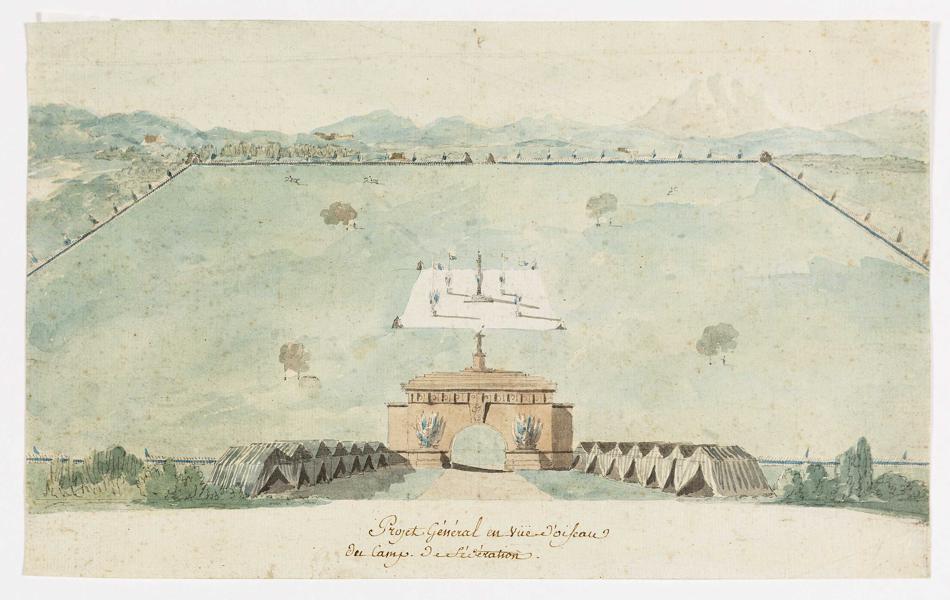 Projet Général en Vüe d'oiseau
du Camp. de Fédération.